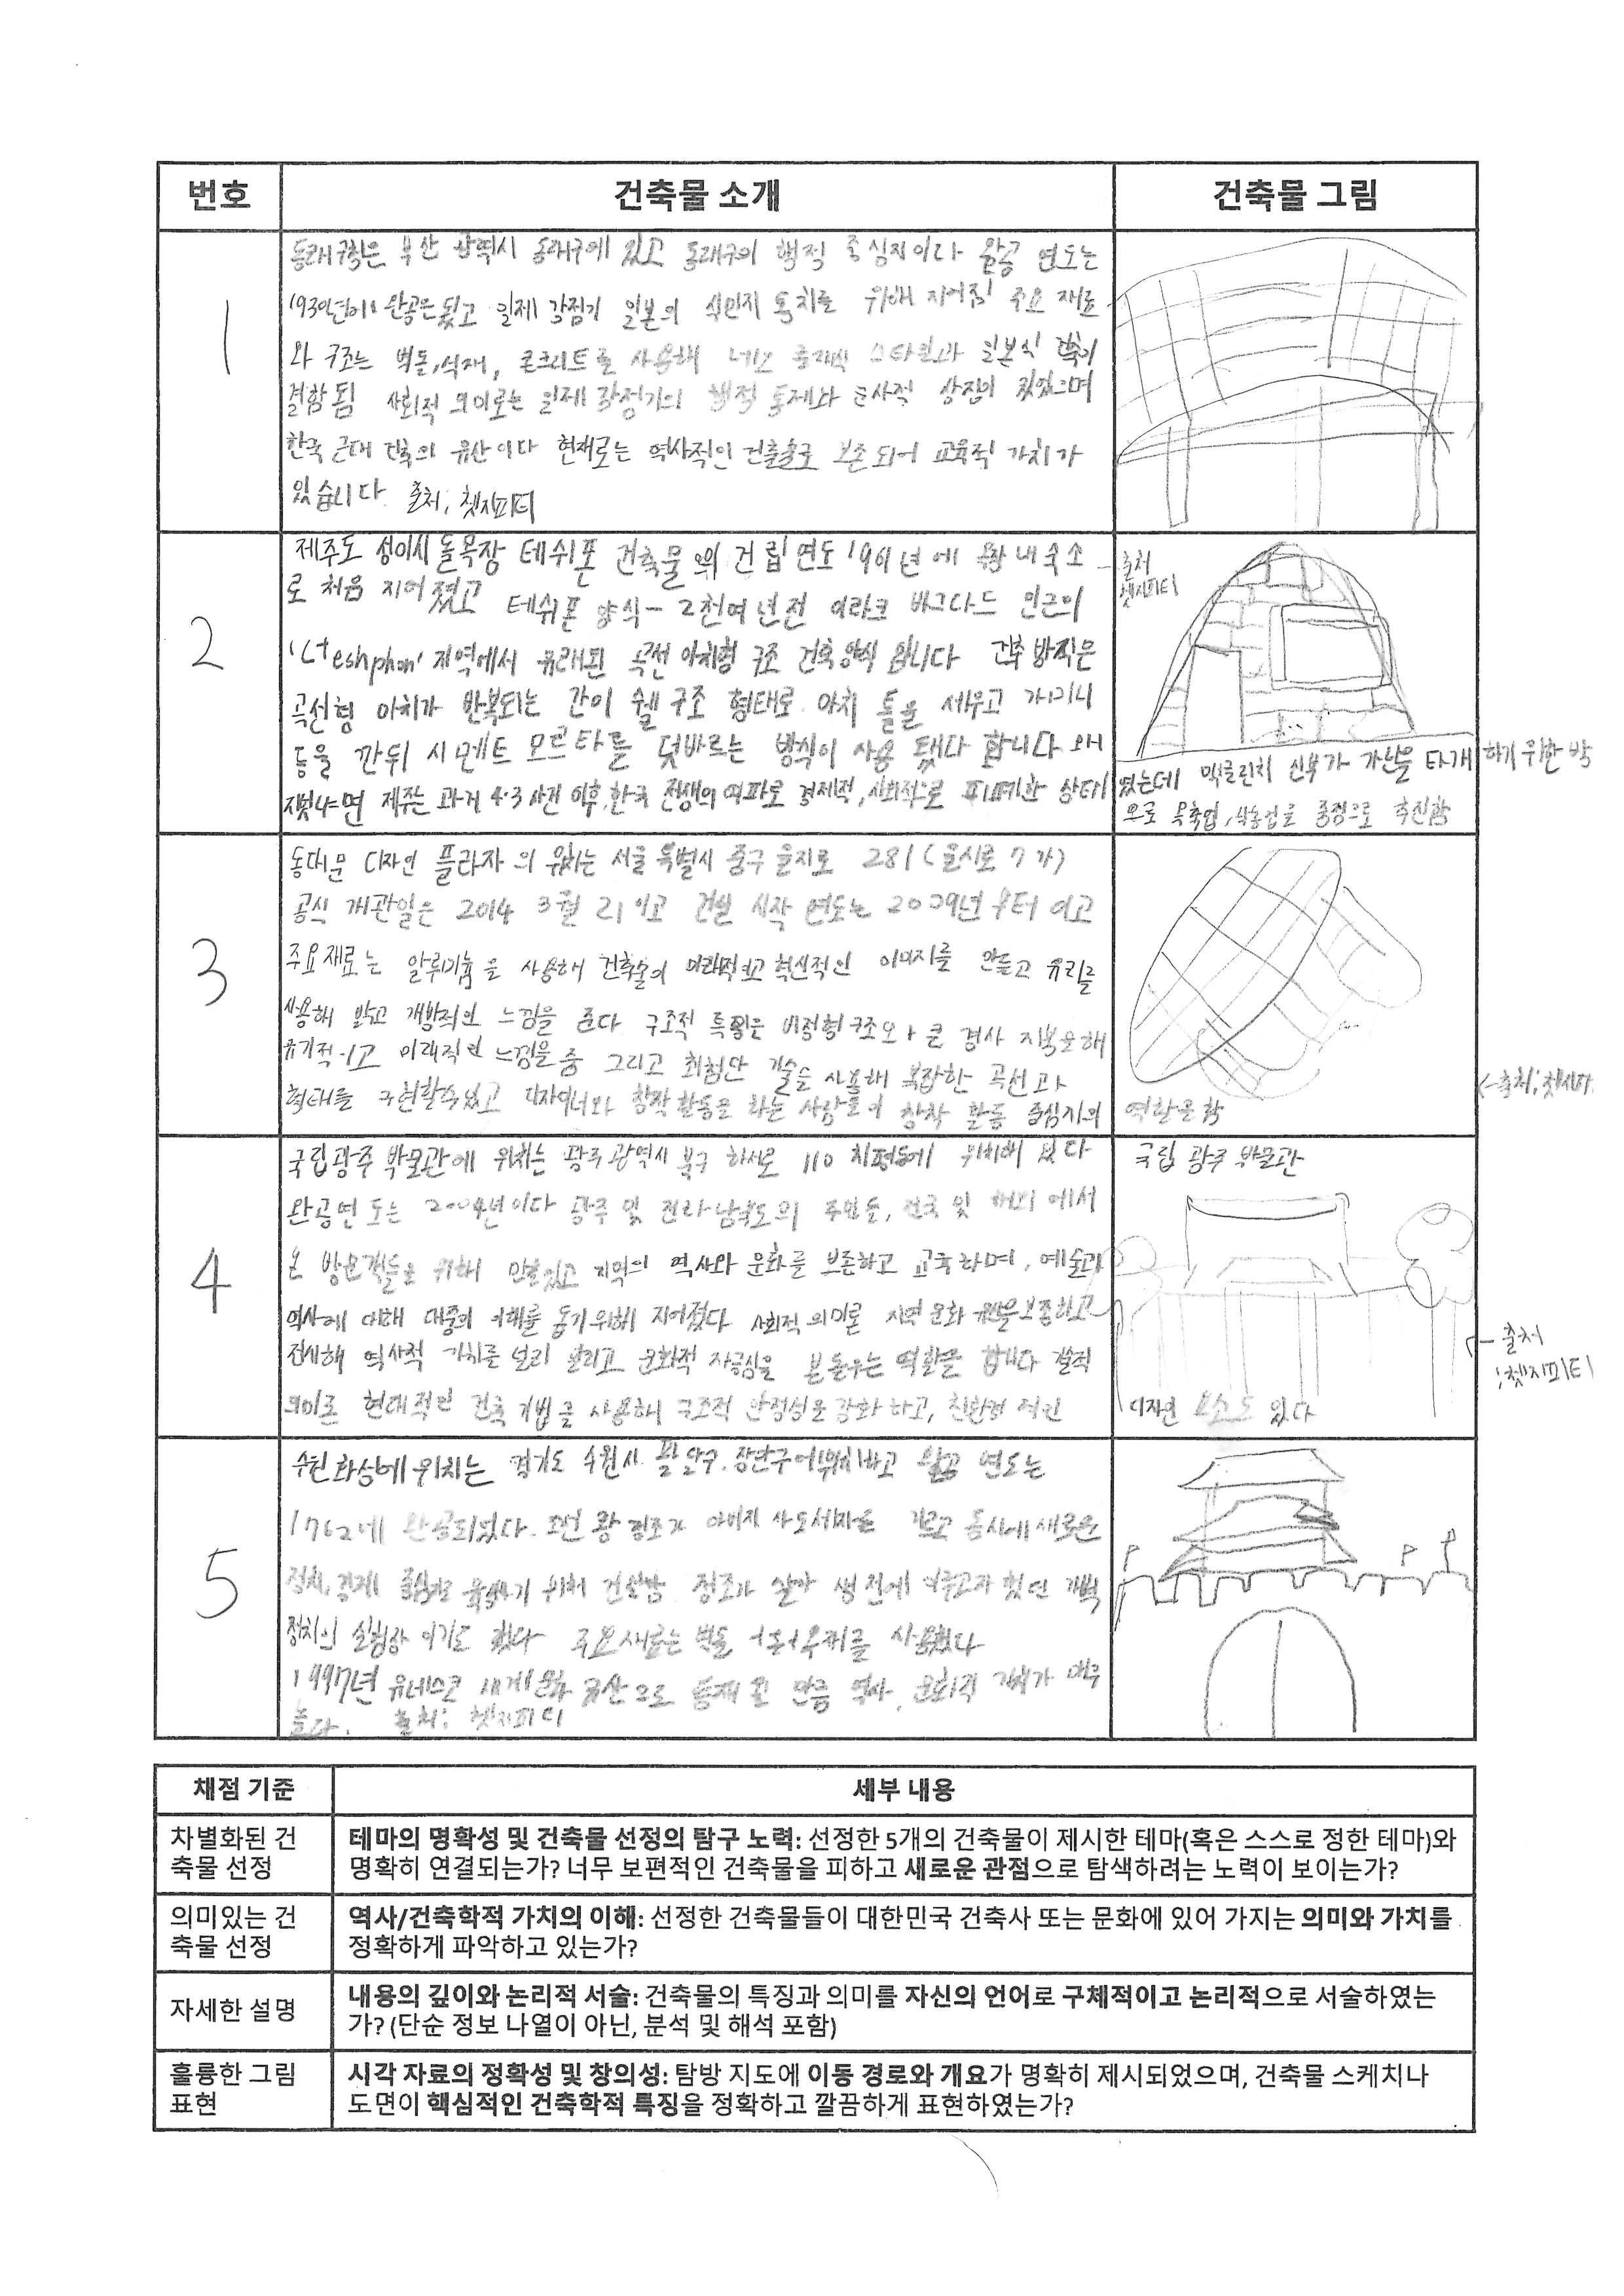 번호 건축물 소개 건축물 그림
1
동래구청은 부산 광역시 동래구에 있고 동래구의 행정 중심지이다 완공 연도는
1930년에 완공은 됬고 일제 강점기 일본의 식민지 통치를 위해 지어짐 주요 재료
와 구조는 벽돌, 석재, 콘크리트를 사용해 네오 스타일과 일본식 건축이
결합됨 사회적 의미로는 일제 강점기의 행정 통제와 군사적 상징이 있었으며
한국 근대 건축의 유산이다 현재로는 역사적인 건축물로 보존되어 교육적 가치가
있습니다 출처; 챗지피티
2
제주도 성이시돌목장 테쉬폰 건축물의 건립연도 1961년에 목장 내 숙소
로 처음 지어졌고 테쉬폰 양식- 2천여년전 이라크 바그다드 인근의
'Cteshphon' 지역에서 유래된 곡선 아치형 구조 건축양식 입니다 건축 방식은
곡선형 아치가 반복되는 간이 쉘 구조 형태로 아치 틀을 세우고 가마니
등을 깐뒤 시멘트 모르타를 덧바르는 방식이 사용 됐다 합니다 왜
지었냐면 제주는 과거 4.3 사건 이후, 한국 전쟁의 여파로 경제적, 사회적으로 피폐한 상태
였는데 맥글린치 신부가 가난을 타개하기 위한 방
으로 목축업, 낙농업을 중점으로 추진함
출처
챗지피티
3
동대문 디자인 플라자의 위치는 서울 특별시 중구 을지로 281 (을지로 7가)
공식 개관일은 2014 3월 21이고 건설 시작 연도는 2009년부터 이고
주요 재료는 알루미늄을 사용해 건축물의 미래적이고 혁신적인 이미지를 만들고 유리를
사용해 밝고 개방적인 느낌을 준다 구조적 특징은 비정형 구조와 큰 경사 지붕은해
유기적이고 미래적인 느낌을 줌 그리고 최첨단 기술을 사용해 복잡한 곡선과
형태를 구현할수있고 디자이너와 창작 활동을 하는 사람들이 창작 활동 중심지의
역할을 함
<-출처; 챗지피
4
국립광주 박물관에 위치는 광주 광역시 북구 하서로 110 위치해 있다
완공연도는 2004년이다 광주 및 전라남북도의 주민들, 전국 및 해외에서
온 방문객들을 위해 만들었고 지역의 역사와 문화를 보존하고 교육하며, 예술과
역사에 대해 대중의 이해를 돕기위해 지어졌다 사회적 의미론 지역 문화 유산을 보존하고
전시해 역사적 가치를 널리 알리고 문화적 자긍심을 북돋우는 역할을 합니다
의미론 현대적인 건축기법을 사용해 구조적 안정성을 강화하고, 친환경 적인
디자인 요소도 있다
국립 광주 박물관
출처
;챗지피티
5
수원화성에 위치는 경기도 수원시 팔달구, 장안구에 위치하고 완공 연도는
1762에 완공되었다. 조선 왕 정조가 아버지 사도세자를 기리고 동시에 새로운
정치, 경제 중심지 위해 건설함. 정조가 생전에 이루고자 했던 개혁
정치의 실험장 이기도 했다 주요 재료는 벽돌 사용했다
1997년 유네스코 세계 문화 유산으로 등재 될 만큼 역사, 문화적 가치가 매우
높다. 출처; 챗지피티
채점 기준 세부 내용
차별화된 건축물 선정
테마의 명확성 및 건축물 선정의 탐구 노력: 선정한 5개의 건축물이 제시한 테마(혹은 스스로 정한 테마)와
명확히 연결되는가? 너무 보편적인 건축물을 피하고 새로운 관점으로 탐색하려는 노력이 보이는가?
의미있는 건축물 선정
역사/건축학적 가치의 이해: 선정한 건축물들이 대한민국 건축사 또는 문화에 있어 가지는 의미와 가치를
정확하게 파악하고 있는가?
자세한 설명
내용의 깊이와 논리적 서술: 건축물의 특징과 의미를 자신의 언어로 구체적이고 논리적으로 서술하였는
가? (단순 정보 나열이 아닌, 분석 및 해석 포함)
훌륭한 그림 표현
시각 자료의 정확성 및 창의성: 탐방 지도에 이동 경로와 개요가 명확히 제시되었으며, 건축물 스케치나
도면이 핵심적인 건축학적 특징을 정확하고 깔끔하게 표현하였는가?